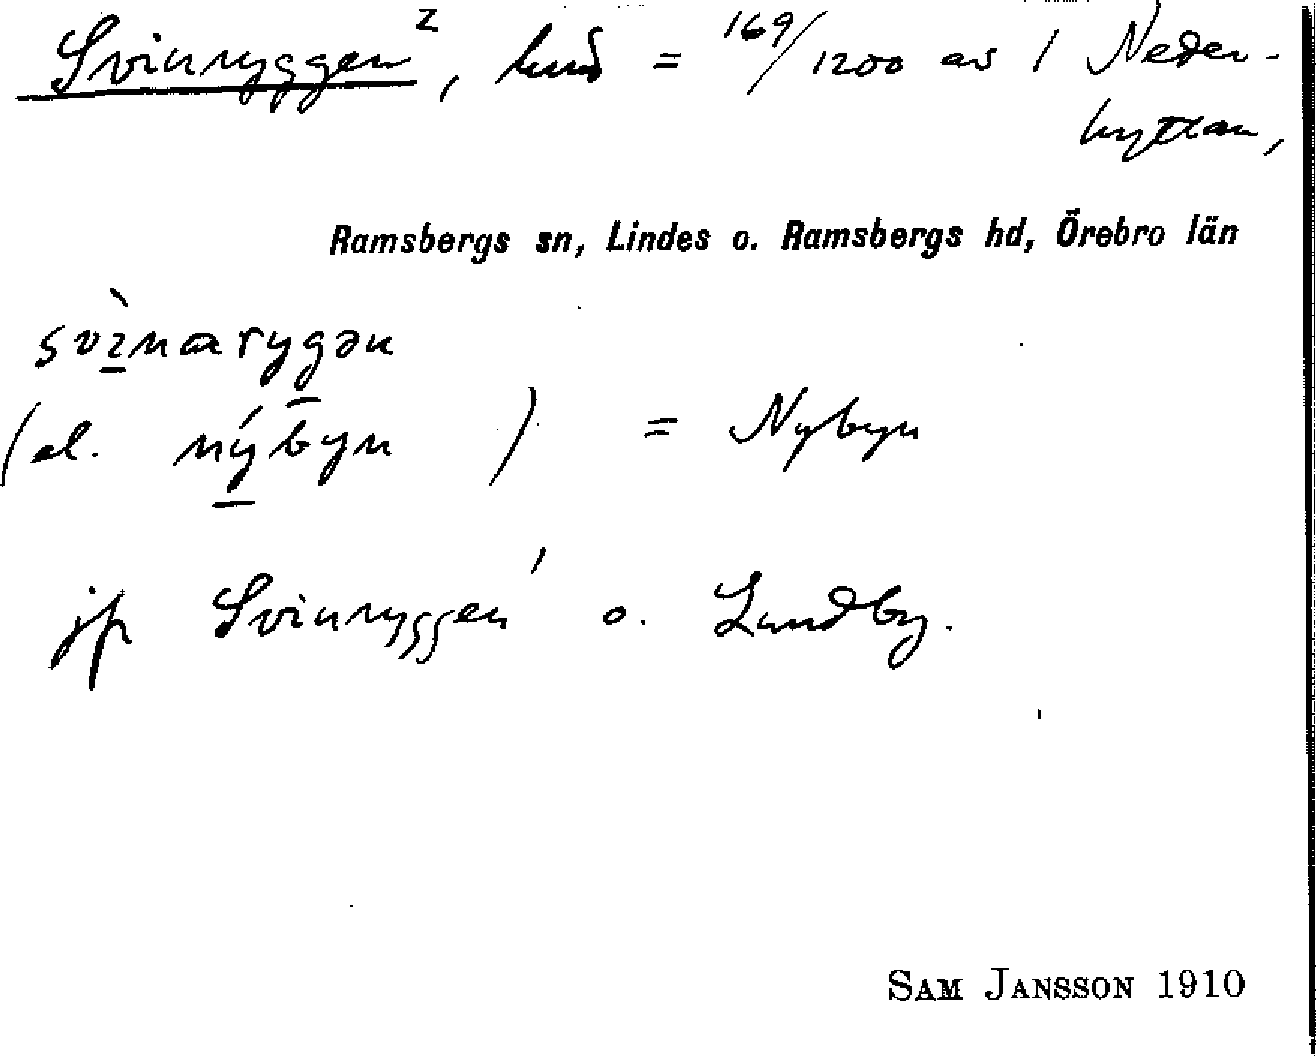 Svinryggen², hmd = 169/1200 av 1 Neder-
hyttan,
Ramsbergs sn, Lindes o. Ramsbergs hd, Örebro län
svìnarygən
(el. nýbyn ) = Nybyn
jfr Svinryggen¹ o. Lundby.
SAM JANSSON 1910